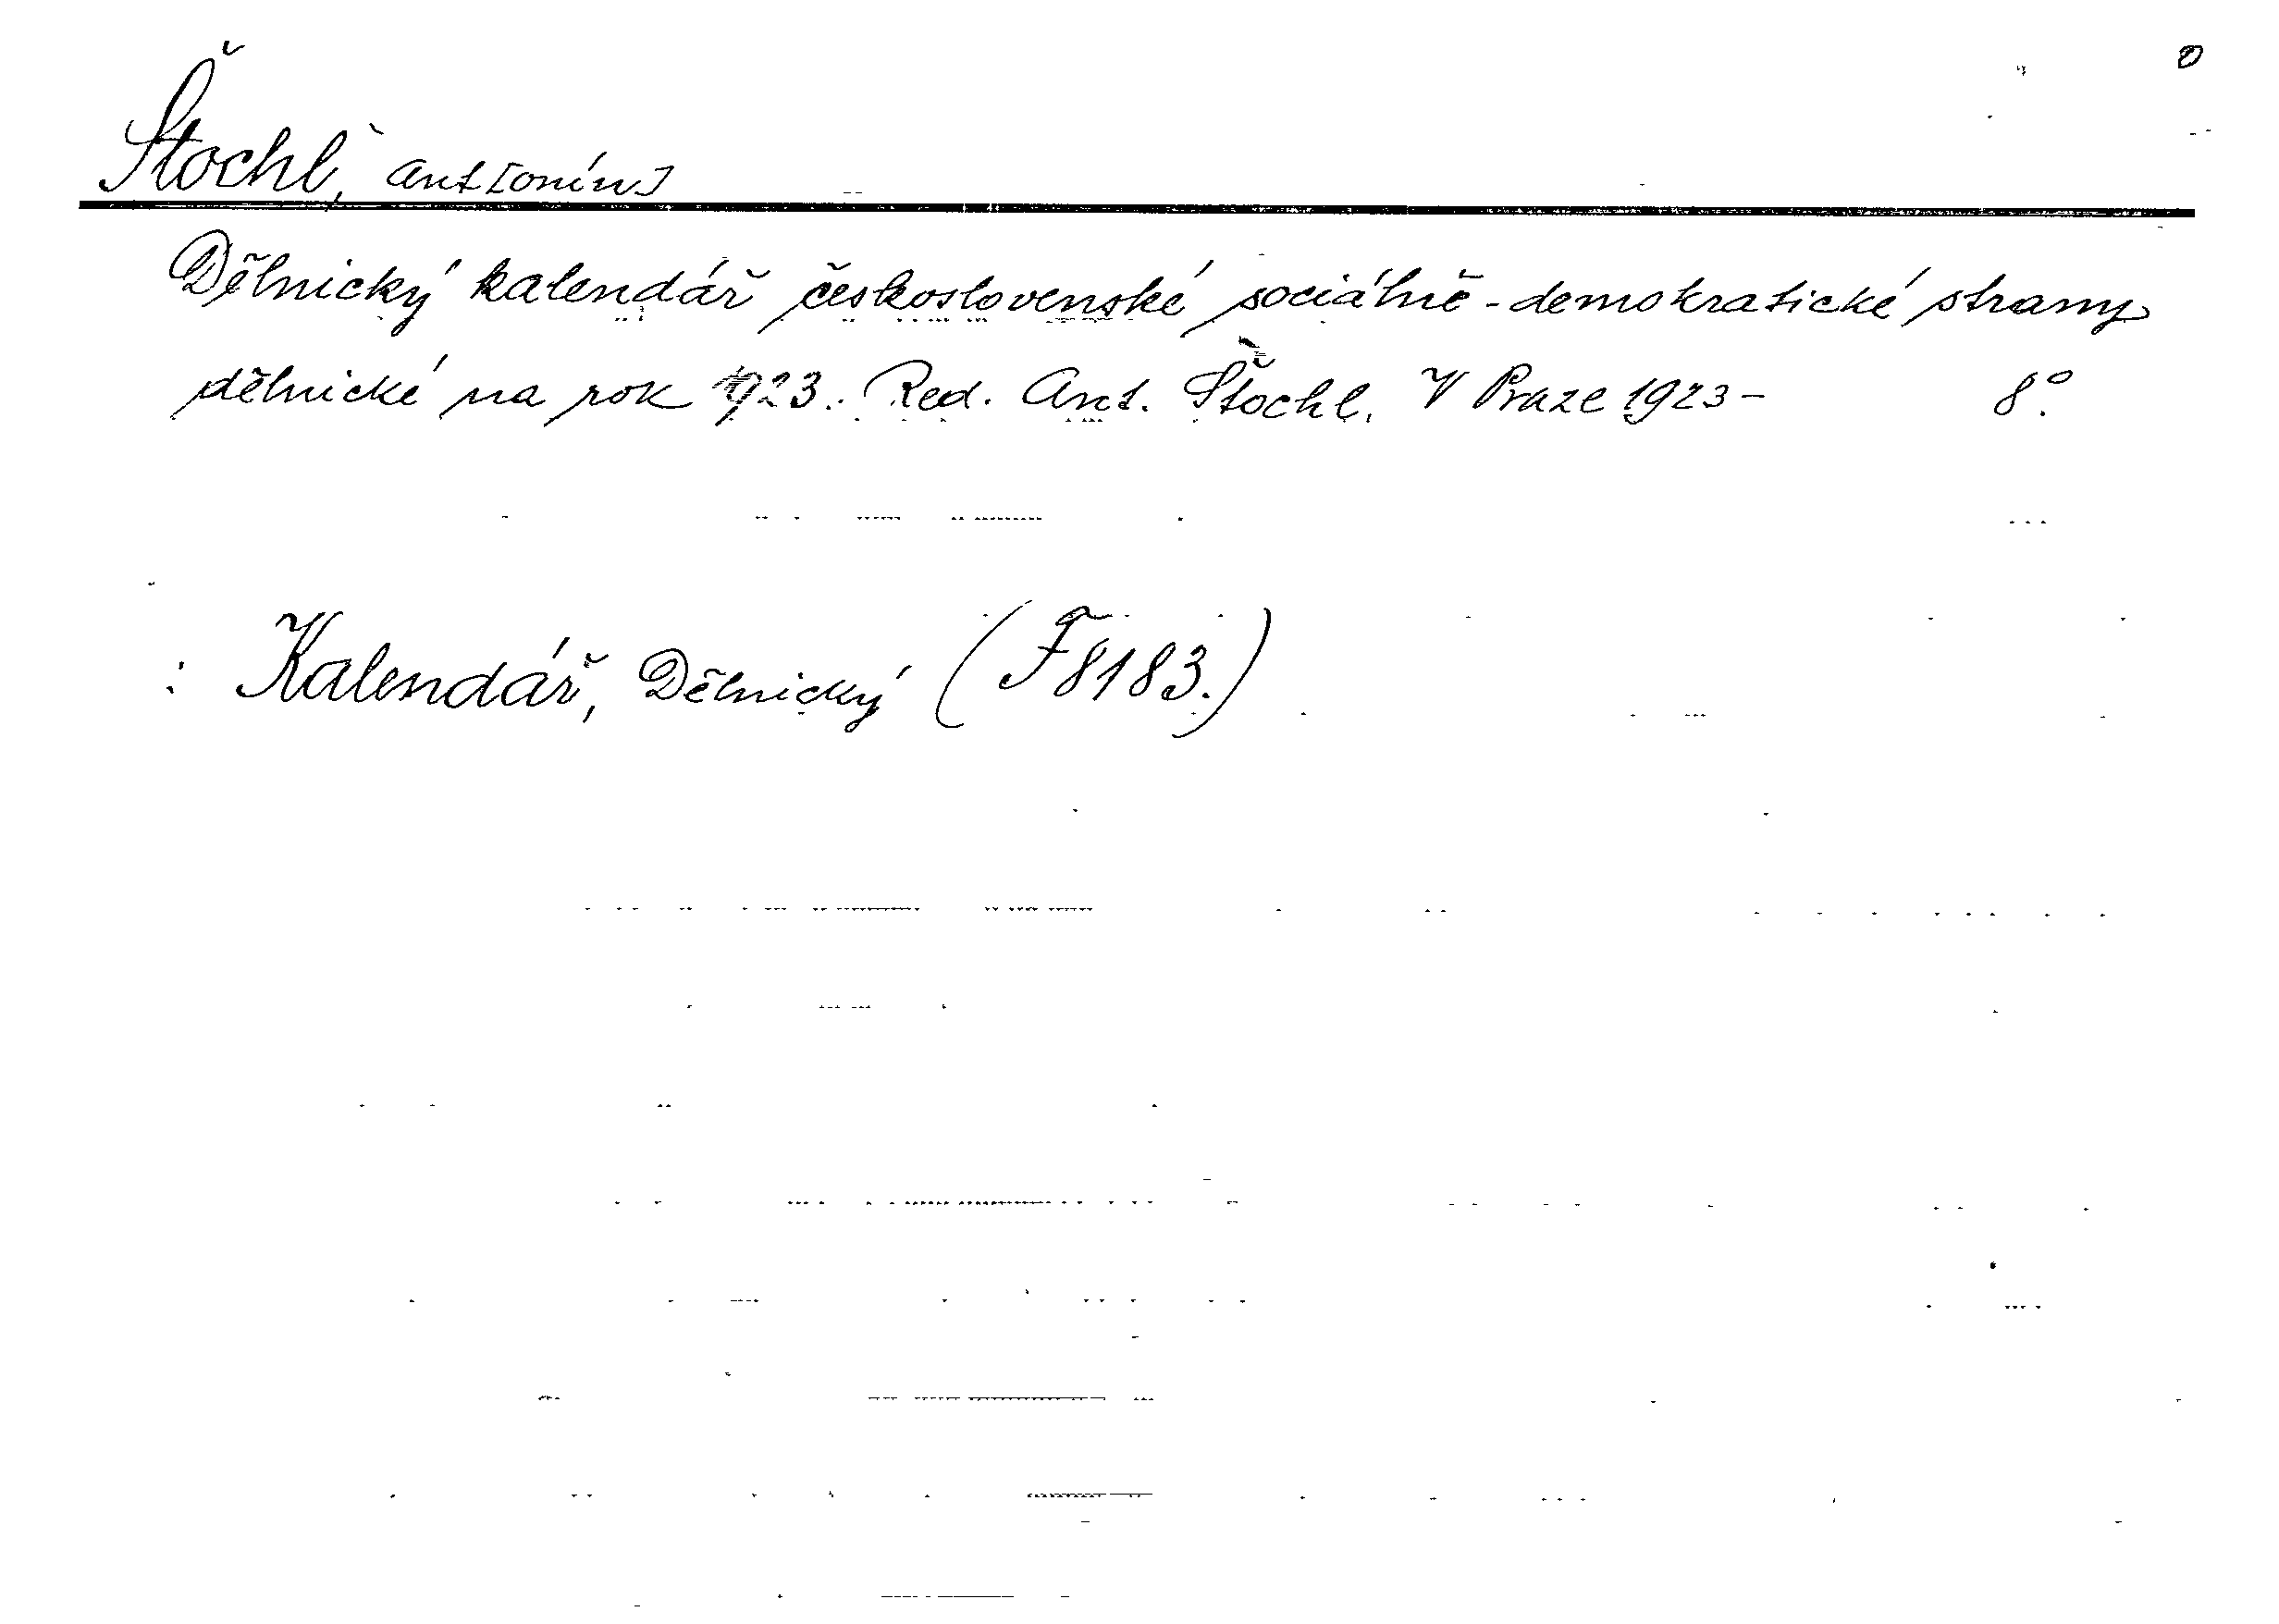 Štochl, Ant[onín]
Dělnický kalendář československé sociálně-demokratické strany
dělnické na rok 1923. Red. Ant. Štochl. V Praze 1923– 8°.
: Kalendář, Dělnický (F8183.)